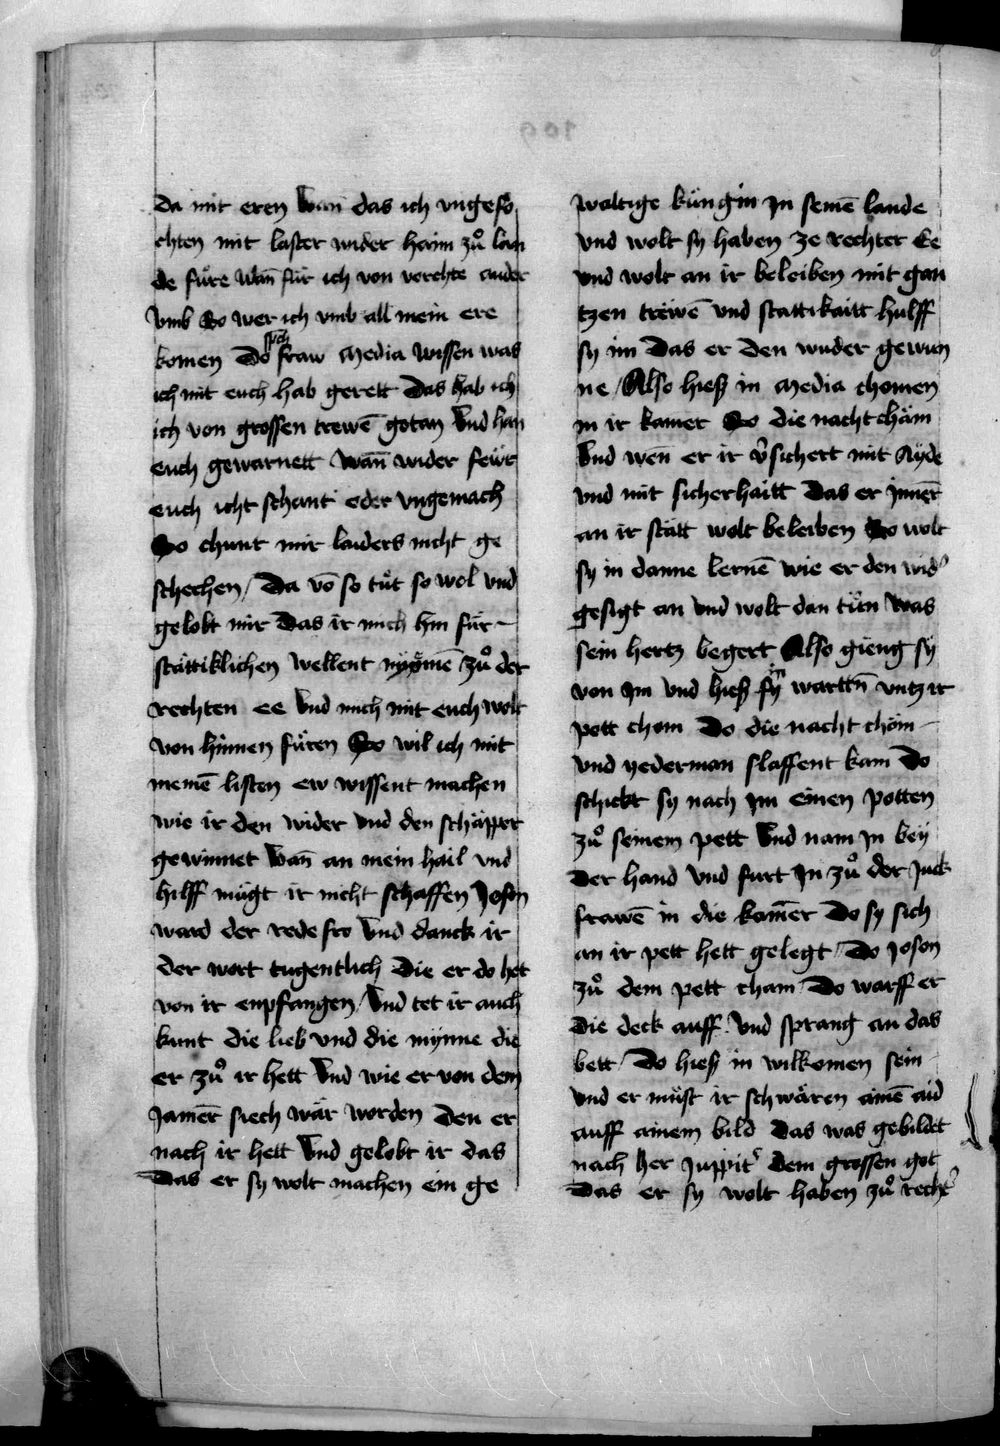 da mit eren Wan das ich vngefo
chten mit laster wider haim zuͦ lan
de fuͤre Wan̄ für ich von vorchte ander
Vmb So wer ich vmb all mein ere
komen Do spch fraw Media wissen was
ich mit euch hab gerett Das hab ich
ich von grossen trewē getan Vnd han
euch gewarnett Wan̄ wider feẅr
euch icht schant oder vngemach
So chunt mir laiders nicht ge
schechen / Da vō so tuͤt so wol vnd
gelobt mir Das ir mich hin für
stättiklichen wellent nÿmē zuͦ der
rechten ee Vnd mich mit euch wolt
von hinnen fuͤren So wil ich mit
meinē listen ew wissent machen
wie ir den wider vnd den schäpper
gewinnet Wan̄ an mein hail vnd
hilff mügt ir nicht schaffen Joson
ward der rede fro Vnd danck ir
der wort tugentlich Die er do het
von ir enpfangen / Vnd tet ir auch
kunt die lieb vnd die mÿnne die
er zuͦ ir hett Vnd wie er von dem
Jamer siech wär worden Den er
nach ir hett Vnd gelobt ir das
Das er sy wolt machen ein ge
waltige küngin Jn seinē lande
vnd wolt sy haben ze rechter Ee
vnd wolt an ir beleiben mit gan
tzen trëwē vnd stattikaitt hulff
sy im Das er den wider gewun
ne / Also hieß in Media chomen
in ir kamer So die nacht chäm
Vnd wen er ir v̄sichert mit Ayde
vnd mit sicherhaitt Das er Jm̄er
an ir statt wolt beleiben So wolt
sy in danne lernē wie er den wid'
gesigt an vnd wolt dan tuͤn Was
sein hertz begert Also gieng sy
von Jm vnd hieß in wartt̄n vntz ir
pott chom Do die nacht chöm
vnd yederman slaffent kam Do
schickt sy nach Jm einen potten
zuͦ seinem pett Vnd nam Jn beÿ
der hand Vnd furt Jn zuͦ der Juck
frawē in die kam̄er Do sy sich
an ir pett hett gelegt / Do Joson
zuͦ dem pett cham Do warff er
die deck auff Vnd sprang an das
bett / Do hieß in wilkomen sein
vnd er müst ir schwären ainē aid
auff ainem bild Das was gebildet
nach her Juppit' dem grossen got
Das er sy wolt haben zuͦ recht'